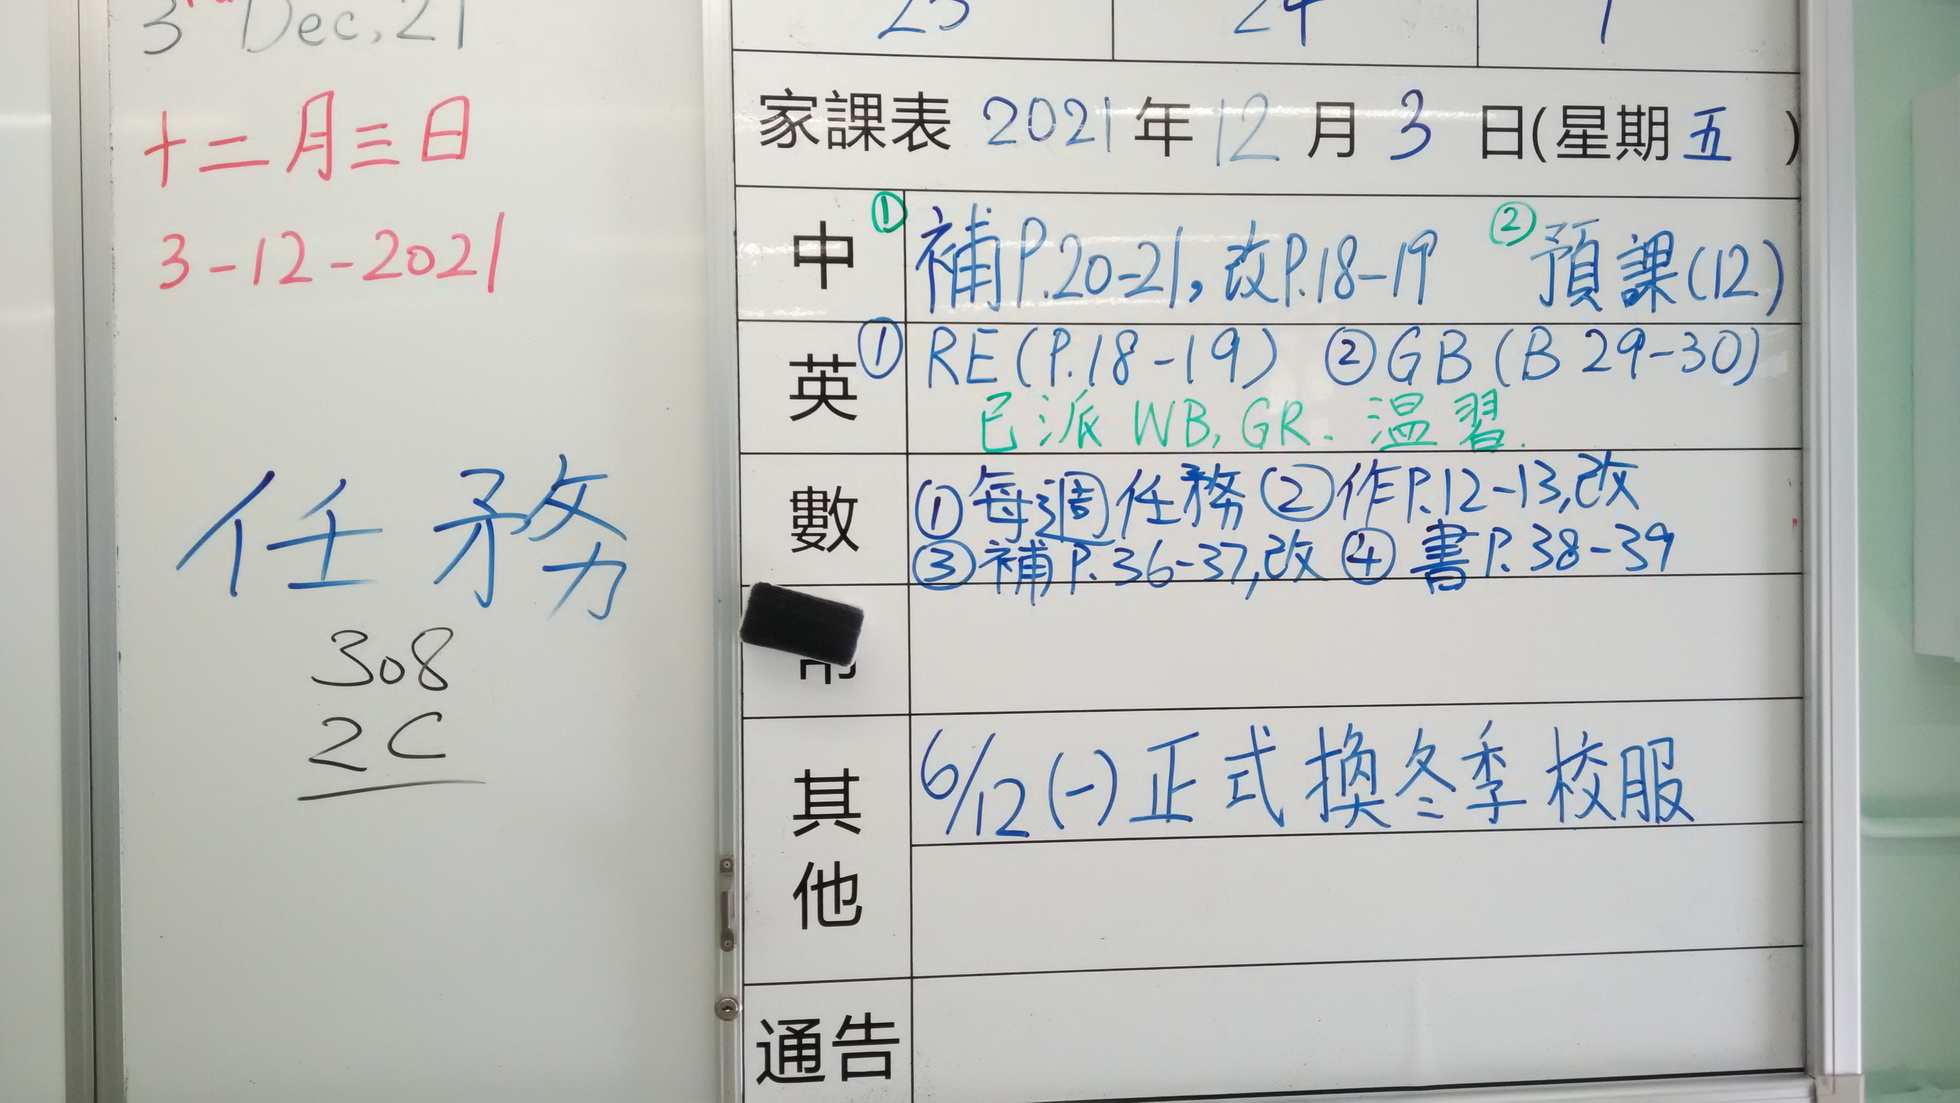 3 Dec, 21
十二月三日
3-12-2021
任務
308
2C
23 24 1
家課表 2021年12月3日(星期五)
中 ①補P.20-21,改P.18-19 ②預課(12)
英 ①RE(P.18-19) ②GB(B 29-30)
已派 WB, GR. 溫習.
數 ①每週任務②作P.12-13,改
③補P.36-37,改④書P.38-39
其他 6/12(一)正式換冬季校服
通告